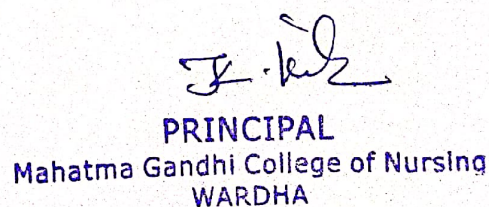 PRINCIPAL
Mahatma Gandhi College of Nursing
WARDHA